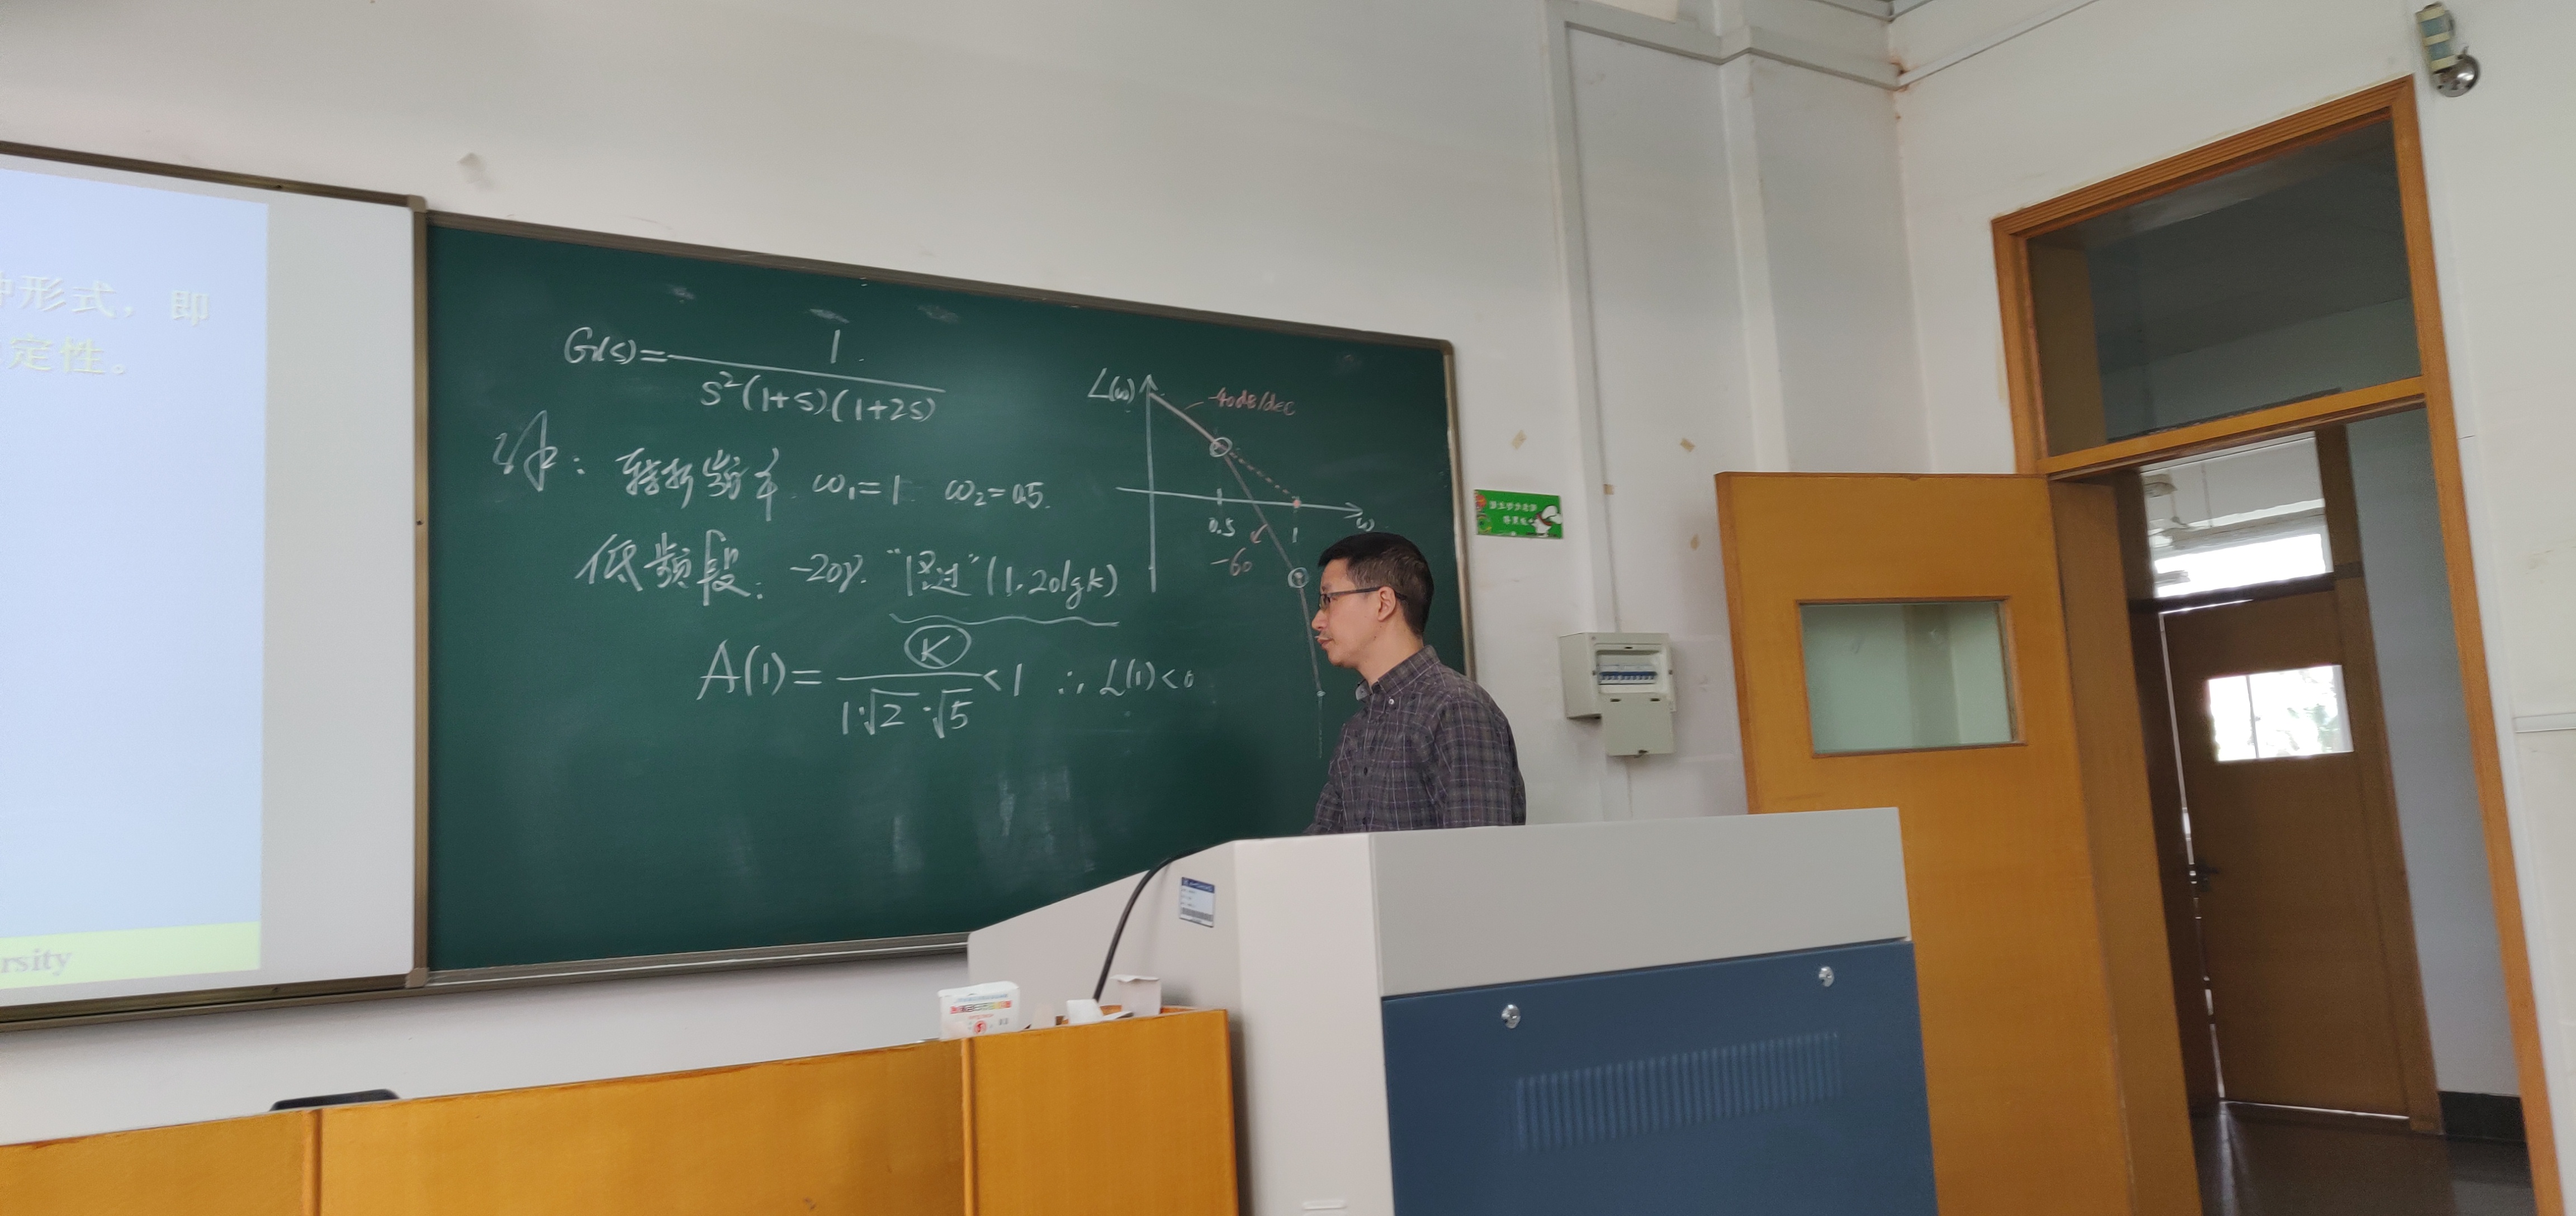 形式，即
定性。
rsity
G(s)=1/(s²(1+s)(1+2s))
解：转折频率 ω₁=1 ω₂=0.5
低频段：-20γ. "过" (1, 20lgk)
A(1)=K/(1·√2·√5)<1 ∴ L(1)<0
L(ω)
-40dB/dec
0.5
1
ω
-60